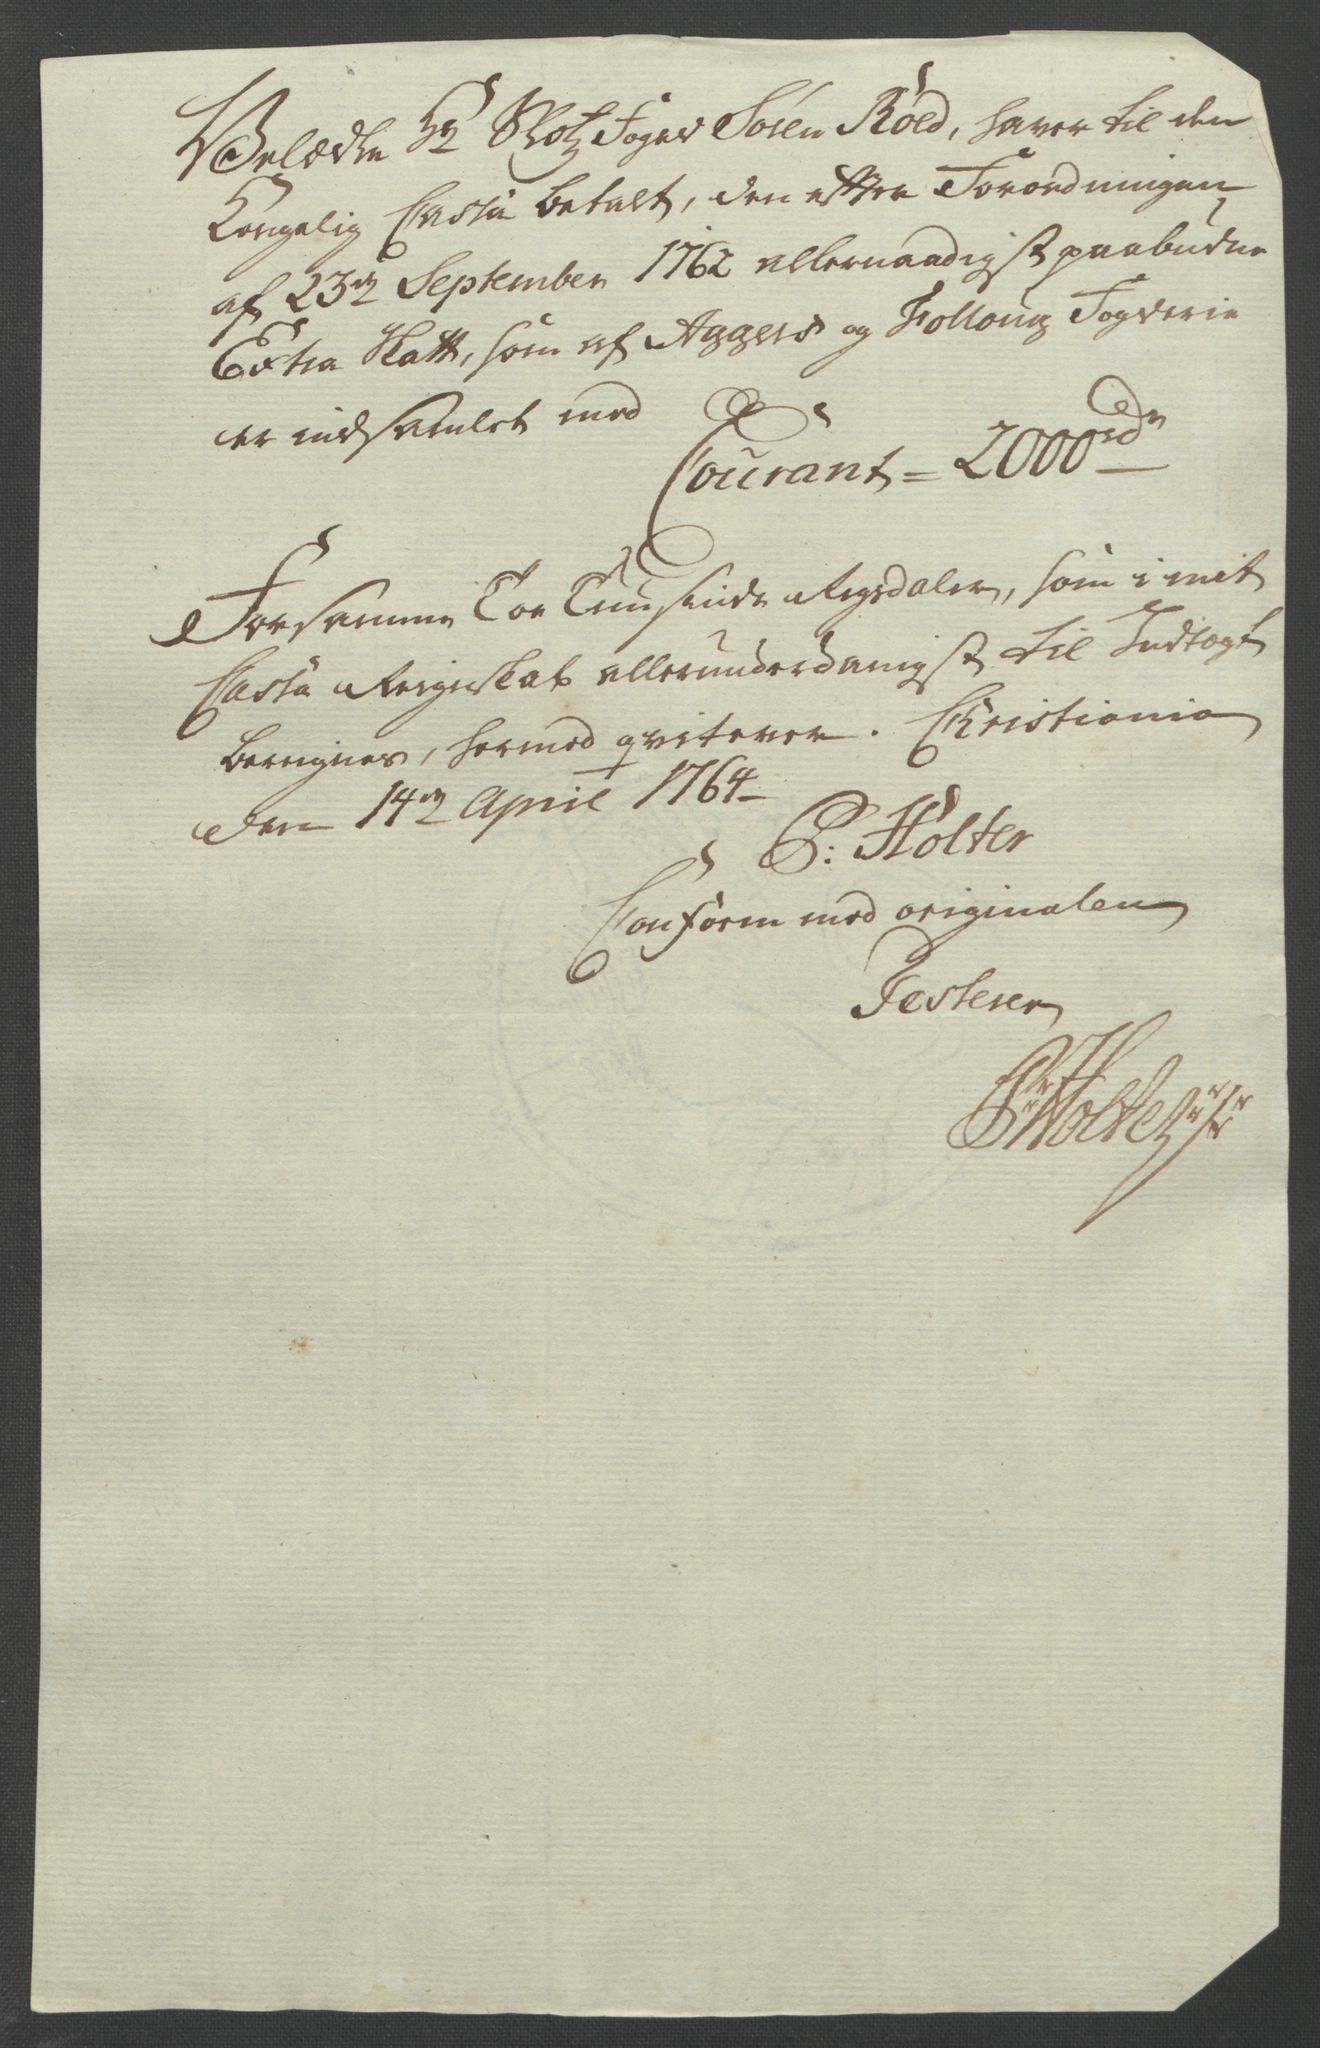 Velædle Hr Slotz Foged Sören Röed, haver til den
Kongelig Cassa betalt, den efter Forordningen
af 23de September 1762 allernaadigst paabudne
Extra Skatt, som af Aggers og Folloug Fogderie
er indsamlet med
Courant = 2000rdr
Forsamme Toe Tuusinde Rigsdaler, som i mit
Cassa Reigskab allerunderdanigst til Indtægt
bereignes, hermed qviterer. Christiania
den 14de April 1764
P: Holter
Conform med originalen
Testerer
P Holter